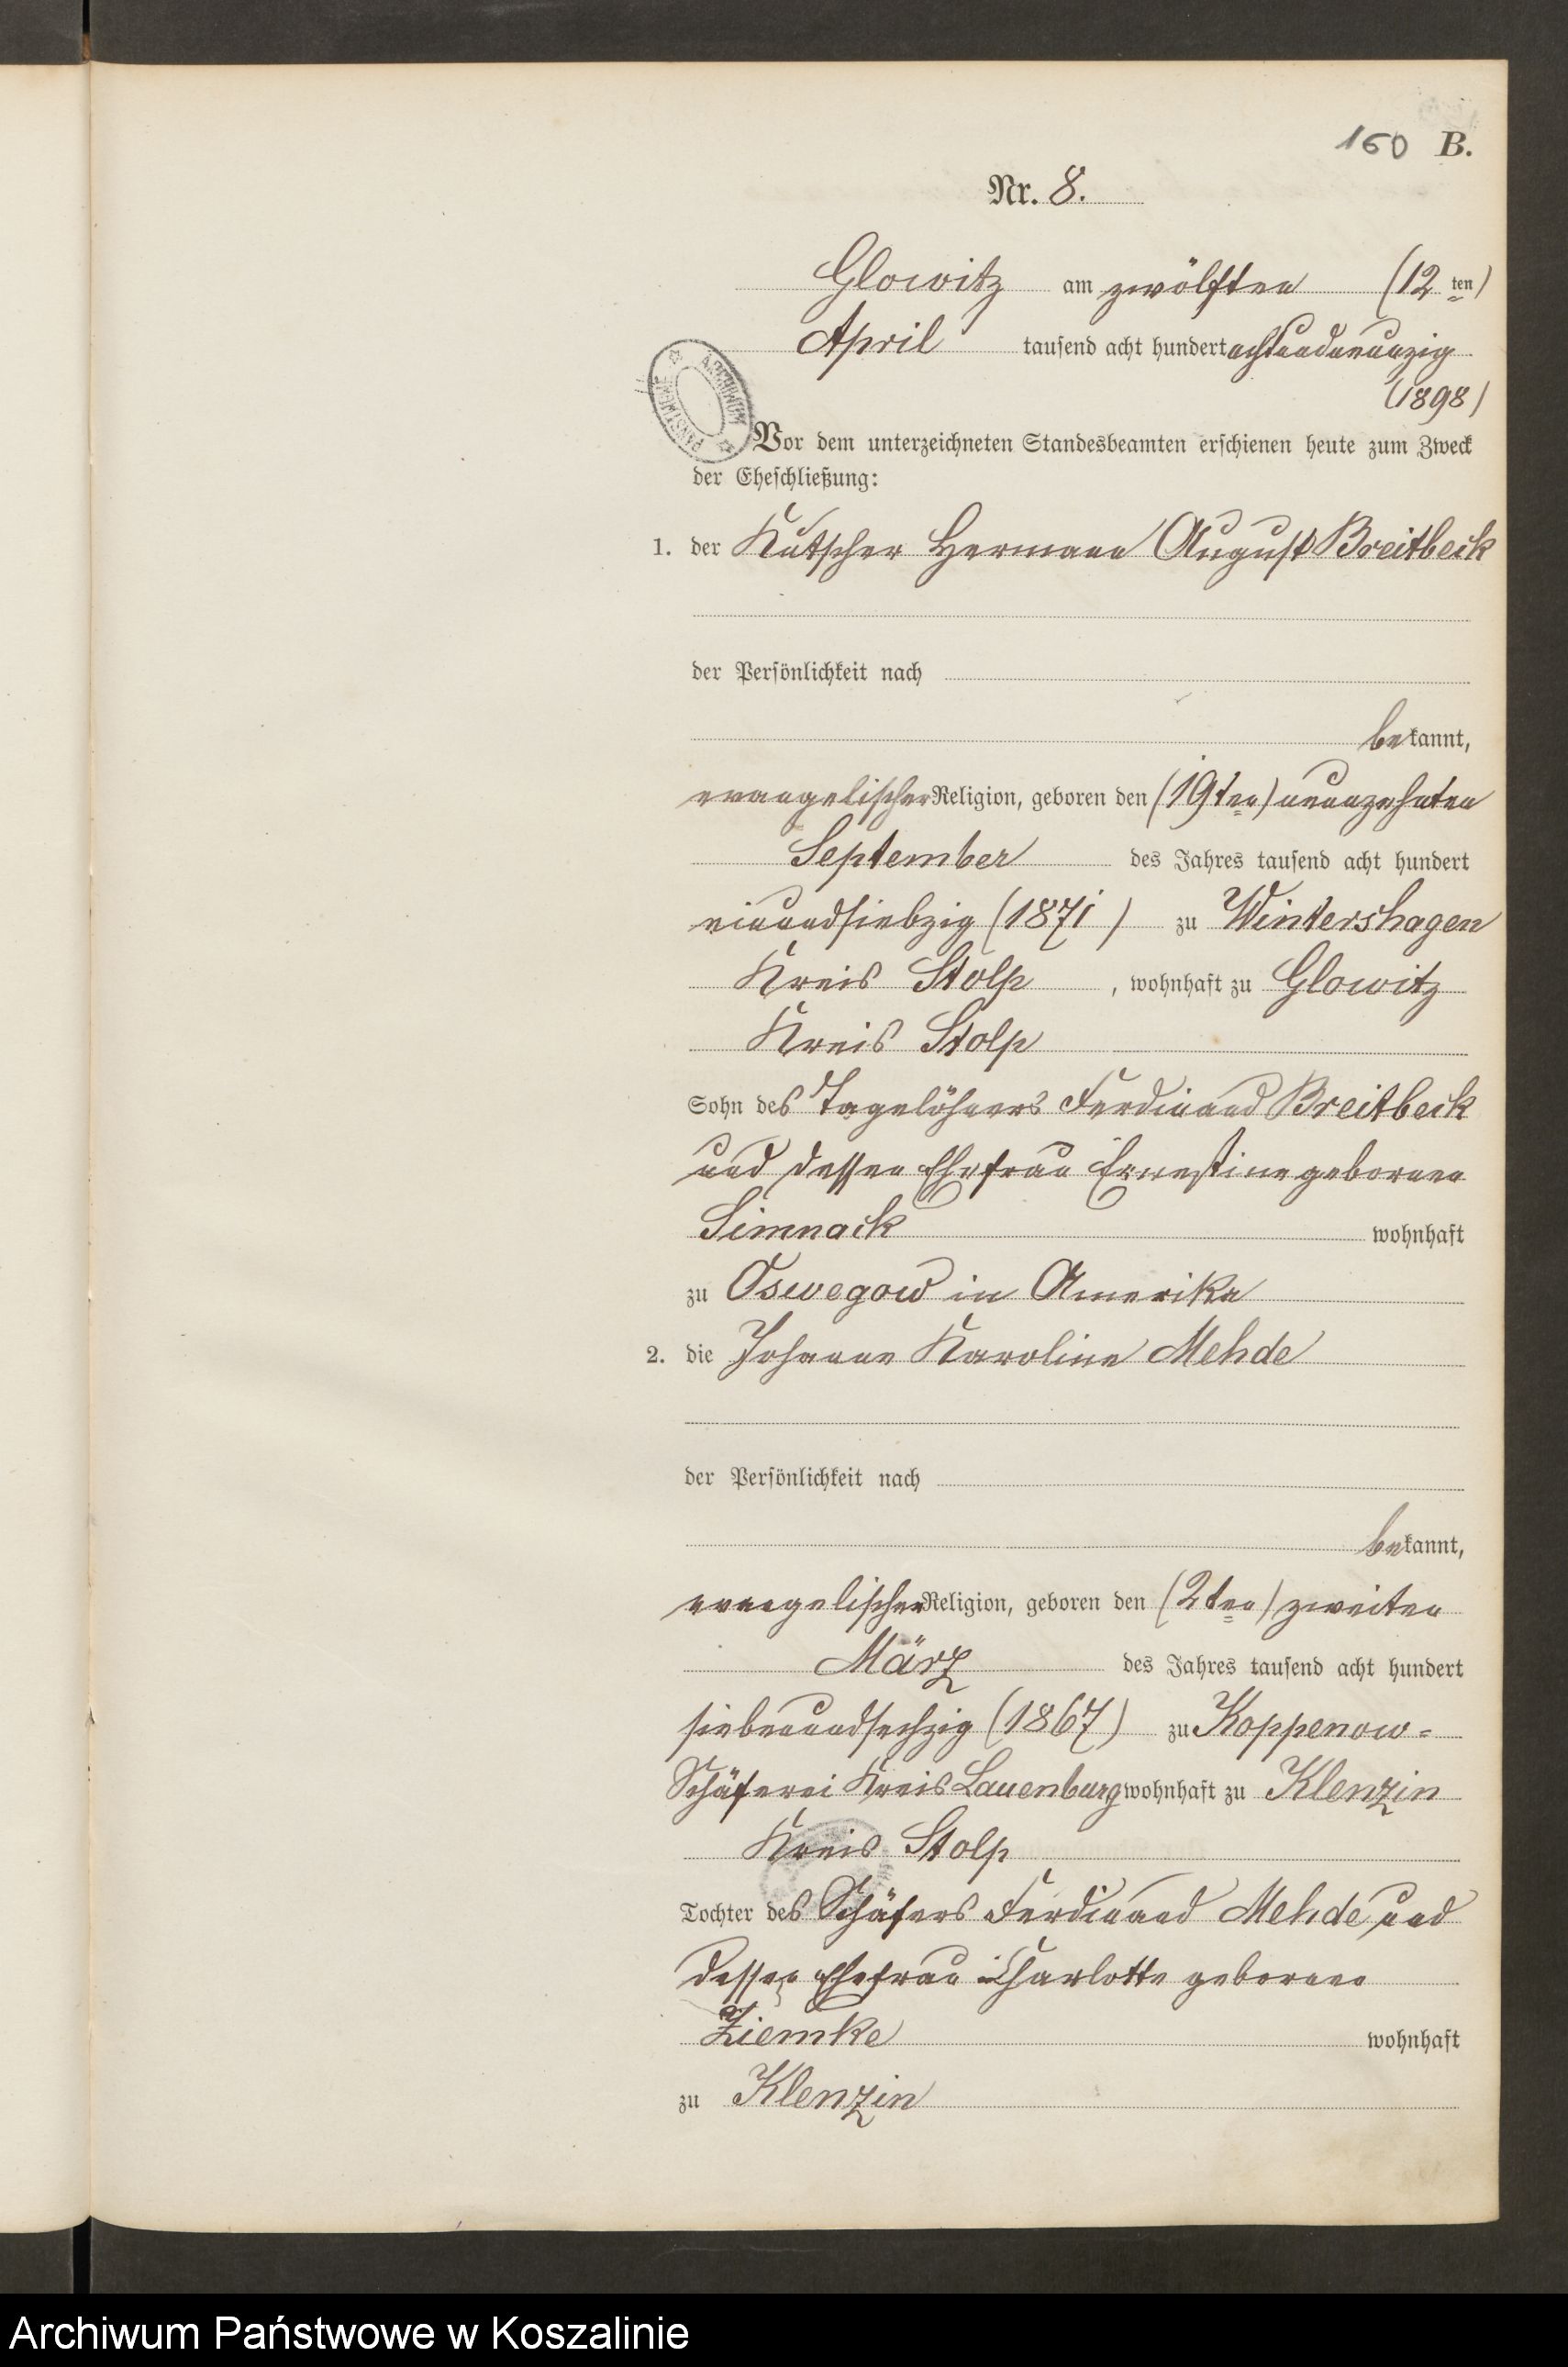 160 B.
Nr. 8.
Glowitz am zwölften (12ten)
April tausend acht hundert achtundneunzig
(1898)
ARCHIWUM PAŃSTWOWE
Vor dem unterzeichneten Standesbeamten erschienen heute zum Zweck
der Eheschließung:
1. der Kutscher Hermann August Breitbeck
der Persönlichkeit nach
bekannt,
evangelischer Religion, geboren den (19ten) neunzehnten
September des Jahres tausend acht hundert
einundsiebzig (1871) zu Wintershagen
Kreis Stolp, wohnhaft zu Glowitz
Kreis Stolp
Sohn des Tagelöhners Ferdinand Breitbeck
und dessen Ehefrau Ernestine geborenen
Simnack wohnhaft
zu Oswegow in Amerika
2. die Johanne Karoline Mehde
der Persönlichkeit nach
bekannt,
evangelischer Religion, geboren den (2ten) zweiten
März des Jahres tausend acht hundert
siebenundsechzig (1867) zu Koppenow-
Schäferei Kreis Lauenburg wohnhaft zu Klenzin
Kreis Stolp
Tochter des Schäfers Ferdinand Mehde und
dessen Ehefrau Charlotte geborenen
Ziemke wohnhaft
zu Klenzin
Archiwum Państwowe w Koszalinie